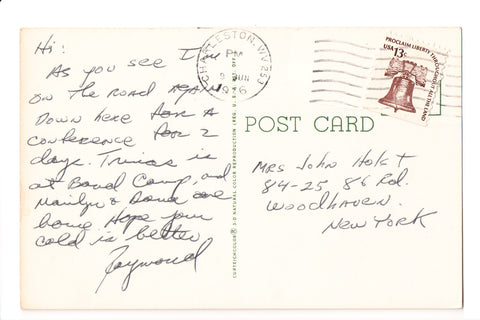 Hi:
As you see I'm
on the road again
Down here for a
conference for 2
days. is
at Band Camp, and
Marilyn & are
home Hope your
cold is better
Raymond
CHARLESTON, WV 253
PM
9 JUN
1976
PROCLAIM LIBERTY THROUGHOUT ALL THE LAND
USA 13c
POST CARD
Mrs John Holst
84-25 86 Rd.
Woodhaven.
New York
CURTEICHCOLOR® 3-D NATURAL COLOR REPRODUCTION (REG. U.S.A. PAT. OFF.)